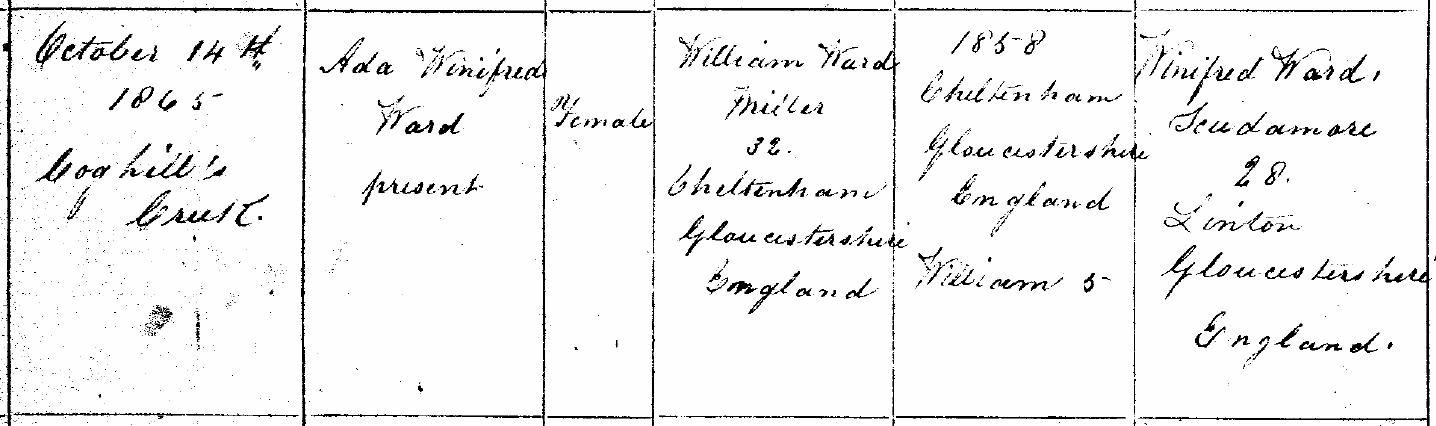 October 14th
1865
Coghill's
Creek.
Ada Winifred
Ward
present
Female
William Ward
Miller
32.
Cheltenham
Gloucestershire
England
1858
Cheltenham
Gloucestershire
England
William 5
Winifred Ward.
Scudamore
28.
Linton
Gloucestershire
England.